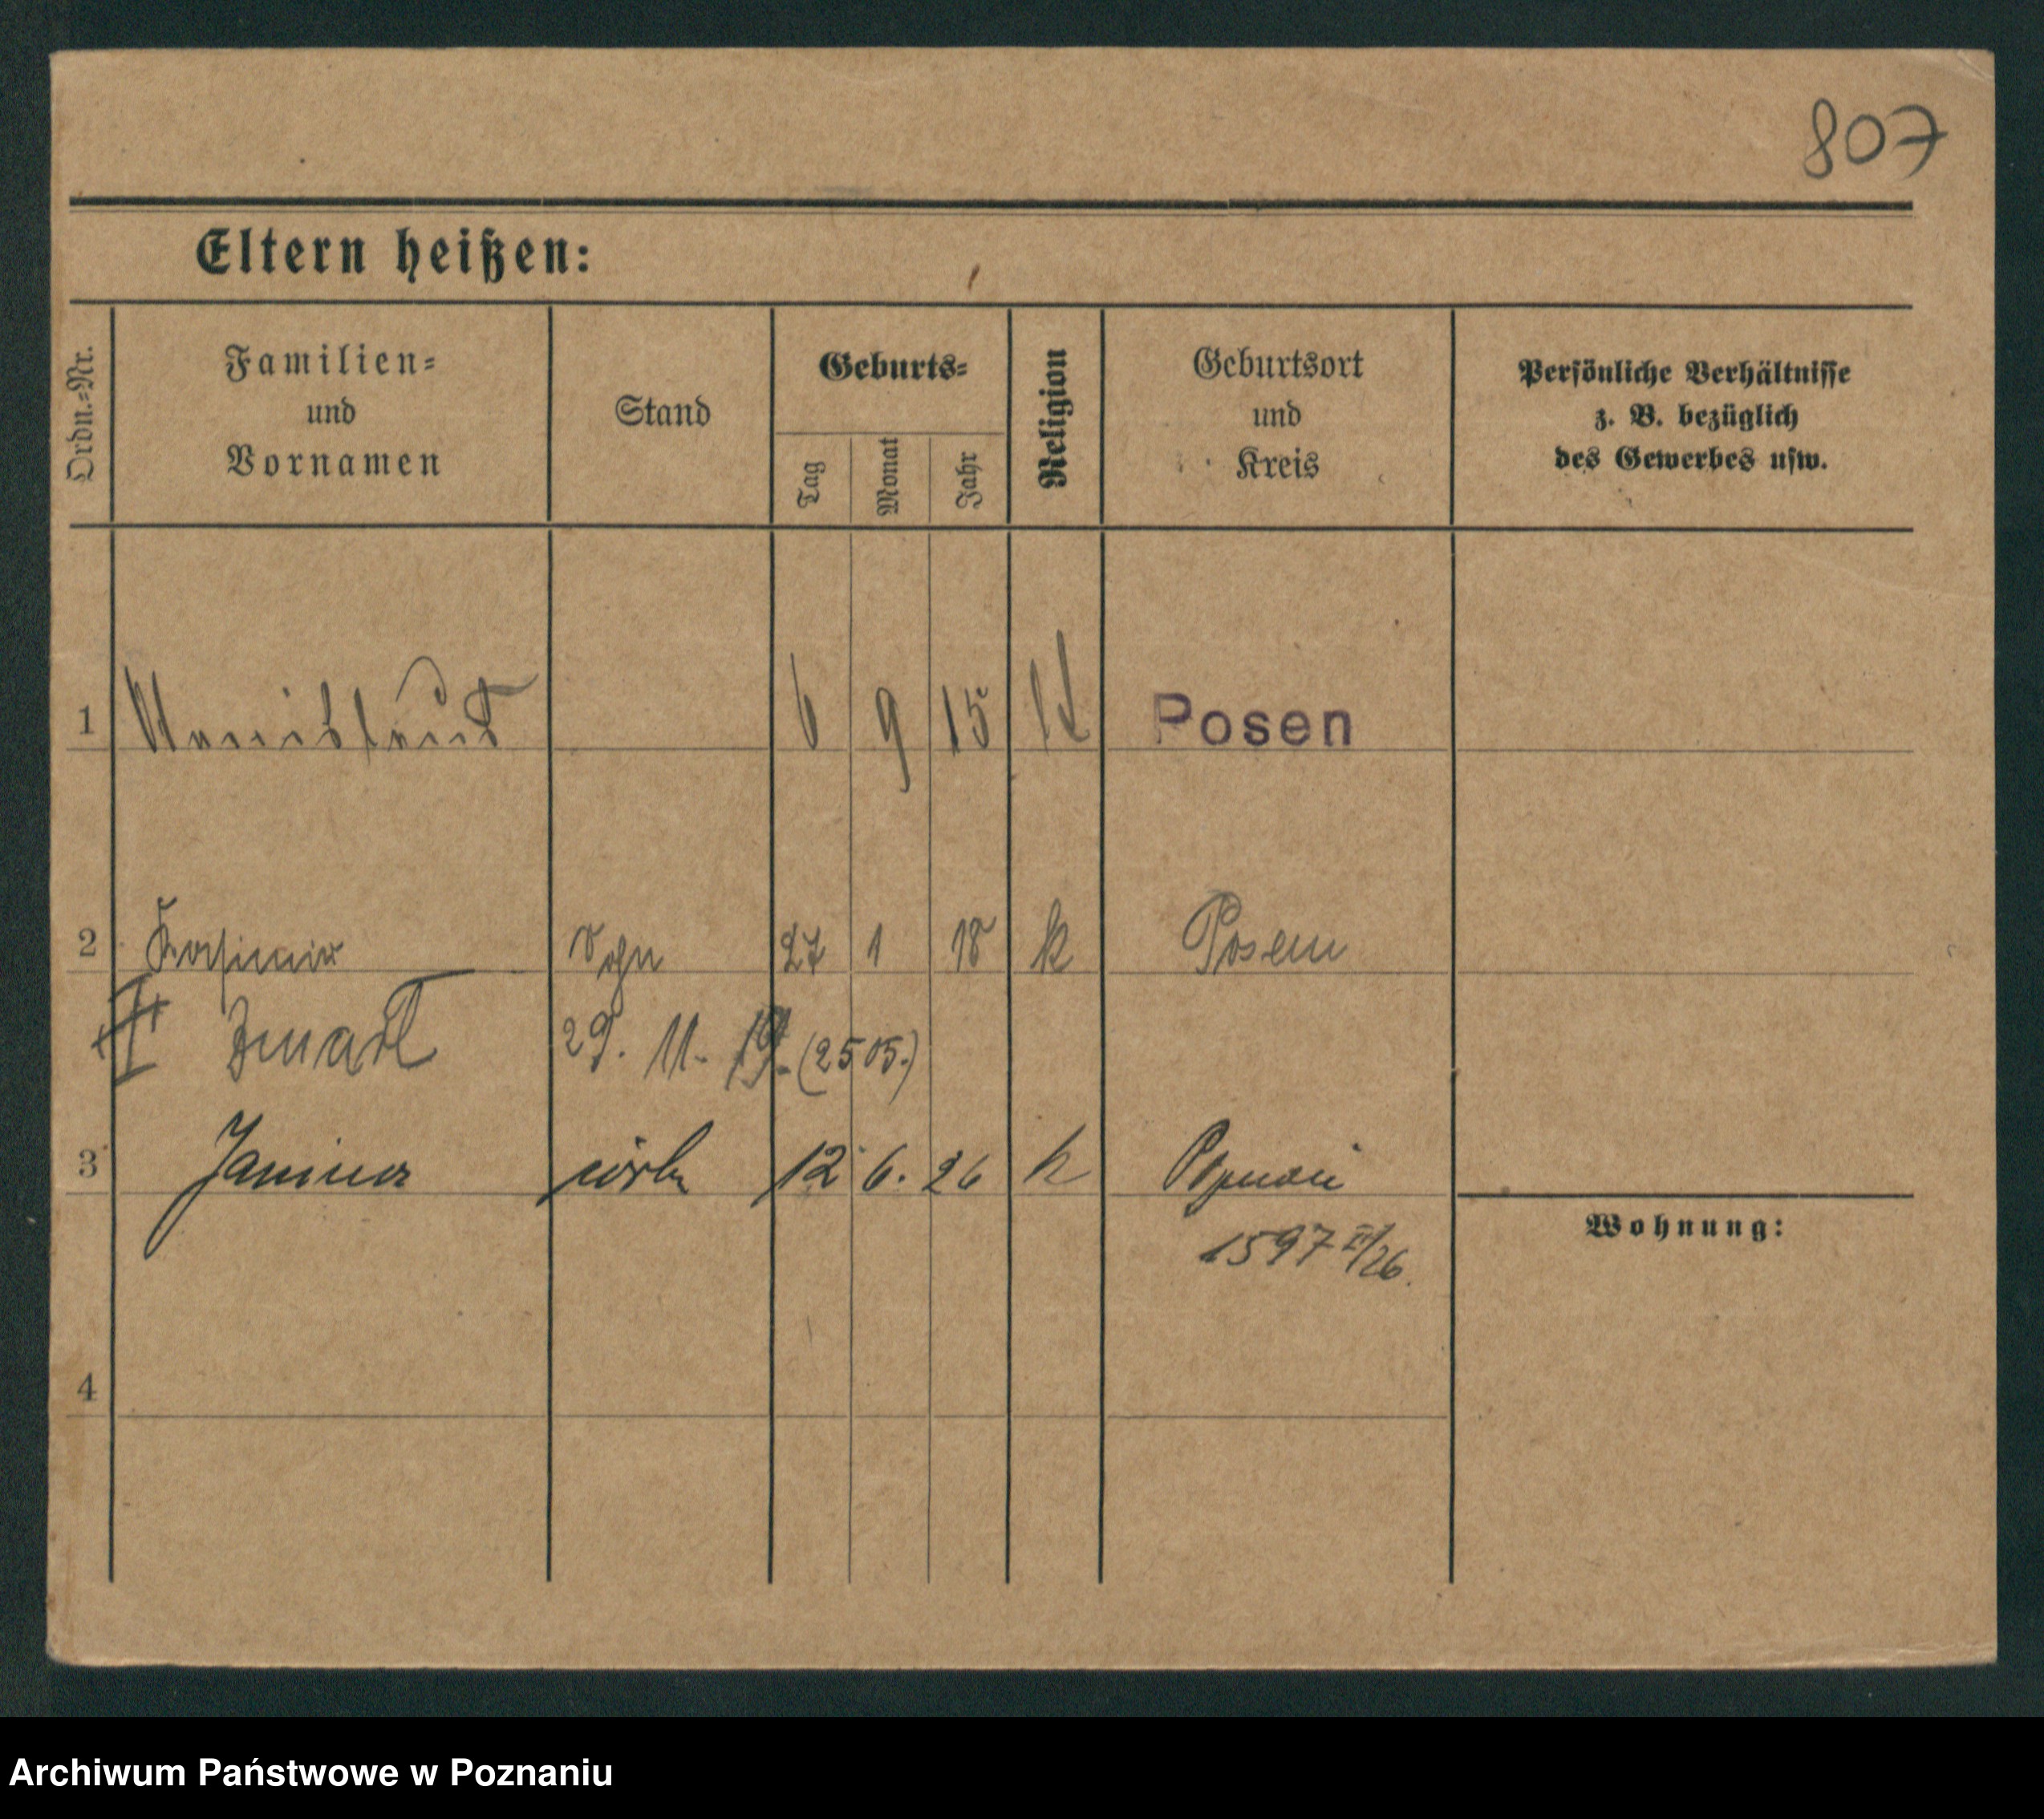 807
Eltern heißen:
Ordn.-Nr.
Familien-
und
Vornamen
Stand
Geburts-
Tag
Monat
Jahr
Religion
Geburtsort
und
Kreis
Persönliche Verhältnisse
z. B. bezüglich
des Gewerbes usw.
1 6 9 15 K Posen
2 Kasimir Sohn 27 1 18 k Posen
zmarł 29. 11. 19. (2505.)
3 Janina córka 12 6. 26 k Poznań
1597 II/26.
Wohnung:
4
Archiwum Państwowe w Poznaniu